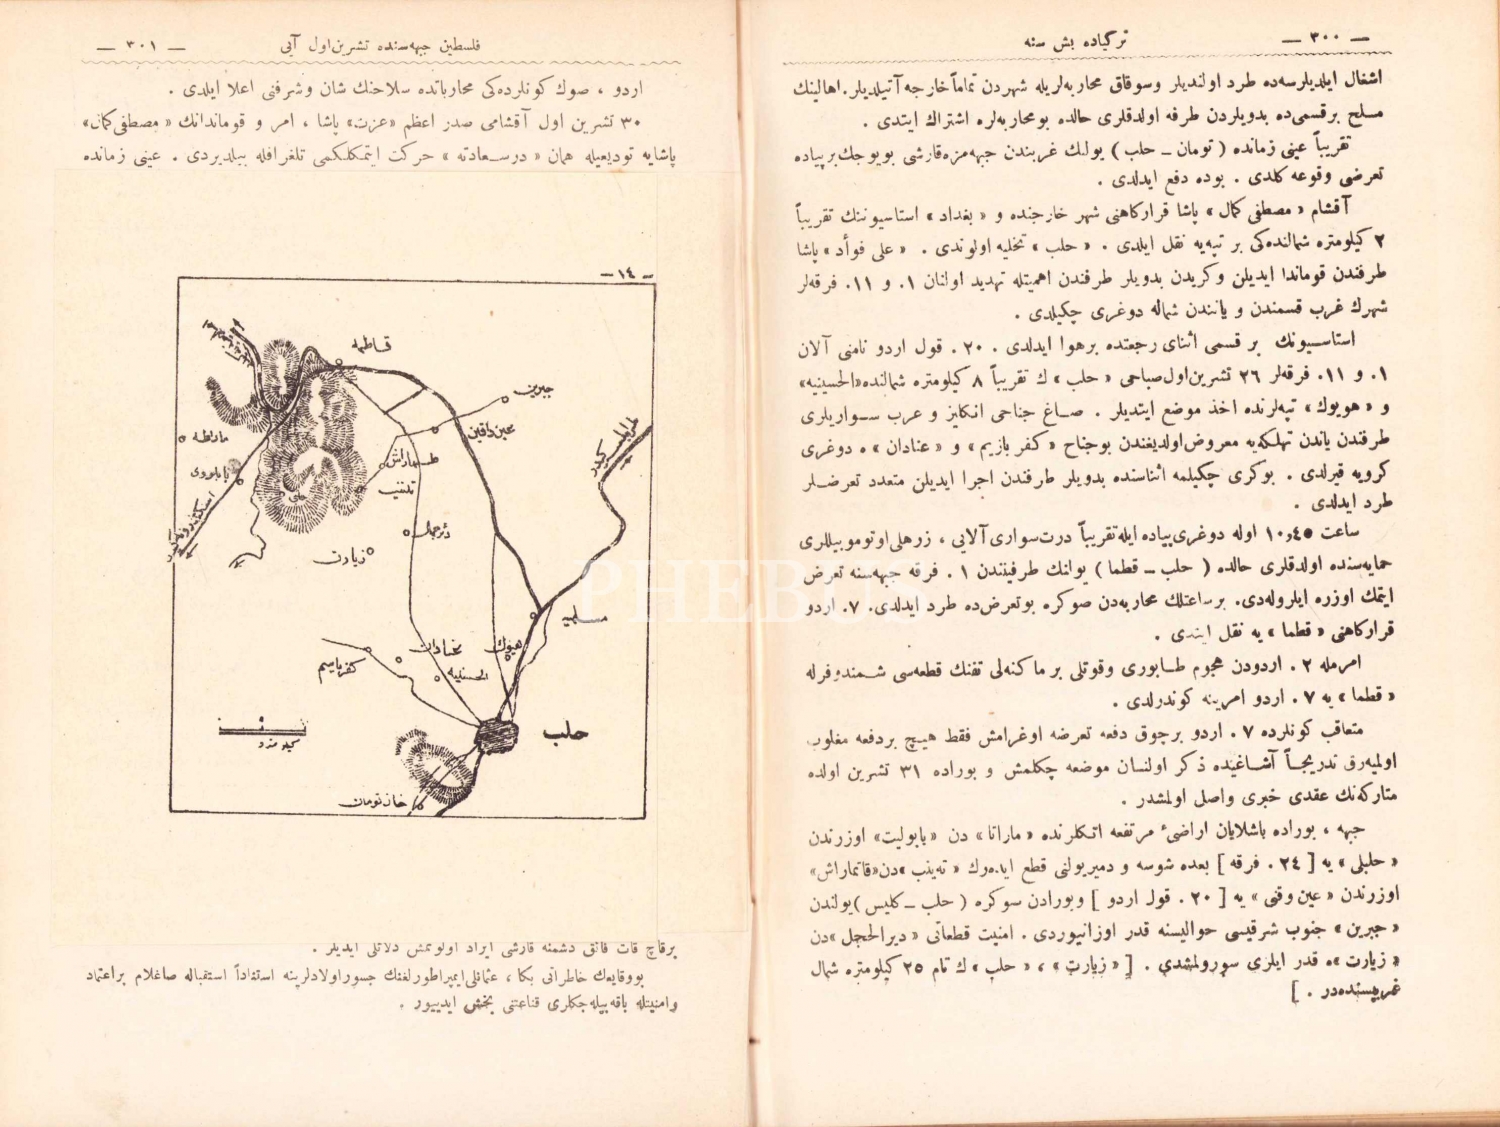 — ٣٠٠ —
تركياده بش سنه
اشغال ايلديلرسه‌ده طرد اولنديلر وسوقاق محاربه‌لريله شهردن تماماً خارجه آتيلديلر. اهالينك
مسلح برقسمى‌ده بدويلردن طرفه اولدقلرى حالده بومحاربه‌لره اشتراك ايتدى .
تقريباً عينى زمانده ( تومان ـ حلب ) يولنك غربندن جبهه‌مزه قارشى بويوجك برپياده
تعرضى وقوعه كلدى . بوده دفع ايدلدى .
آقشام « مصطفى كمال » پاشا قراركاهنى شهر خارجنده و « بغداد » استاسيوننك تقريباً
٢ كيلومتره شمالنده‌كى بر تپه‌يه نقل ايلدى . « حلب » تخليه اولوندى . « على فوأد » پاشا
طرفندن قوماندا ايديلن وكريدن بدويلر طرفندن اهميتله تهديد اولنان ١. و ١١. فرقه‌لر
شهرك غرب قسمندن و ياننـدن شماله دوغرى چكيلدى .
استاسيونك بر قسمى اثناى رجعتده برهوا ايدلدى . ٢٠ . قول اردو نامنى آلان
١. و ١١. فرقه‌لر ٢٦ تشرين‌اول‌صباحى « حلب » ك تقريباً ٨ كيلومتره شمالنده«الحسينيه»
و « هويوك » تپه‌لرنده اخذ موضع ايتديلر . صاغ جناحى انكليز و عرب سواريلرى
طرفندن ياندن تهلكه‌يه معروض‌اولديغندن بوجناح « كفر بازيم » و « عنادان » ه دوغرى
كرويه قيرلدى . بوكرى چكيلمه اثناسنده بدويلر طرفندن اجرا ايديلن متعدد تعرضـلر
طرد ايدلدى .
ساعت ١٠,٤٥ اوله دوغرى‌پياده ايله‌تقريباً درت‌سوارى آلايى ، زرهلى‌اوتوموبيللرى
حمايه‌سنده اولدقلرى حالده ( حلب ـ قطما ) يولنك طرفيتندن ١ . فرقه جبهه‌سنه تعرض
ايتمك اوزره ايلروله‌دى. برساعتلك محاربه‌دن صوكره بوتعرض‌ده طرد ايدلدى. ٧. اردو
قراركاهنى « قطما » يه نقل ايتدى .
امرمله ٢ . اردودن هجوم طـابورى وقوتلى بر ماكنه‌لى تفنك قطعه‌سى شـمندوفرله
« قطما » يه ٧. اردو امرينه كوندرلدى .
متعاقب كونلرده ٧. اردو برچوق دفعه تعرضه اوغرامش فقط هيـچ بردفعه مغلوب
اولميه‌رق تدريجـاً آشـاغيده ذكر اولنسان موضعه چكلمش و بوراده ٣١ تشرين اولده
متاركه‌نك عقدى خبرى واصل اولمشدر .
جبهه ، بوراده باشلايان اراضىٔ مرتفعه اتكلرنده « ماراتا » دن « بابوليت» اوزرندن
« حلبلى » يه [ ٢٤ . فرقه ] بعده شوسه و دميريولنى قطع ايده‌رك « ته‌ينب »دن«قاتماراش»
اوزرندن « عين وقنى » يه [ ٢٠ . قول اردو ] وبورادن سوكره ( حلب ـ كليس )يولندن
« جبرين » جنوب شرقيسى حواليسنه قدر اوزانيوردى . امنيت قطعاتى « ديرالجل »دن
« زيارت »ه قدر ايلرى سورولمشدى . [ « زيارت » ، « حلب » ك تام ٢٥ كيلومتره شمال
غربيسنده‌در . ]
فلسطين جبهه‌سنده تشرين‌اول آيى
— ٣٠١ —
اردو ، صوك كونلرده‌كى محارباتده سلاحنك شان وشرفنى اعلا ايلدى .
٣٠ تشرين اول آقشامى صدر اعظم «عزت» پاشا ، امر و قوماندانك « مصطفى كمال»
پاشايه توديعيله همان « درسـعادته » حركت ايتمكلكمى تلغرافله بيلديردى . عينى زمانده
— ١٤ —
قـاطمه
جبرين
عين‌داقين
مارطه
طـماراش
بابلوودى
تلنيب
ديرجمال
زيارت
مسلميه
هيوك
عنادان
الحسنيه
كفرباسم
حلب
كيلومتره
خان تومان
برقاچ قات فائق دشمنه قارشى ايراد اولونمش دلائلى ايديلر .
بووقايعك خاطراتى بكا ، عثمانلى‌ايمپراطورلغنك جسوراولادلرينه استناداً استقباله صاغلام براعتماد
وامنيتله باقه‌بيله‌جكلرى قناعتنى بخش ايدييور .
PHEBUS